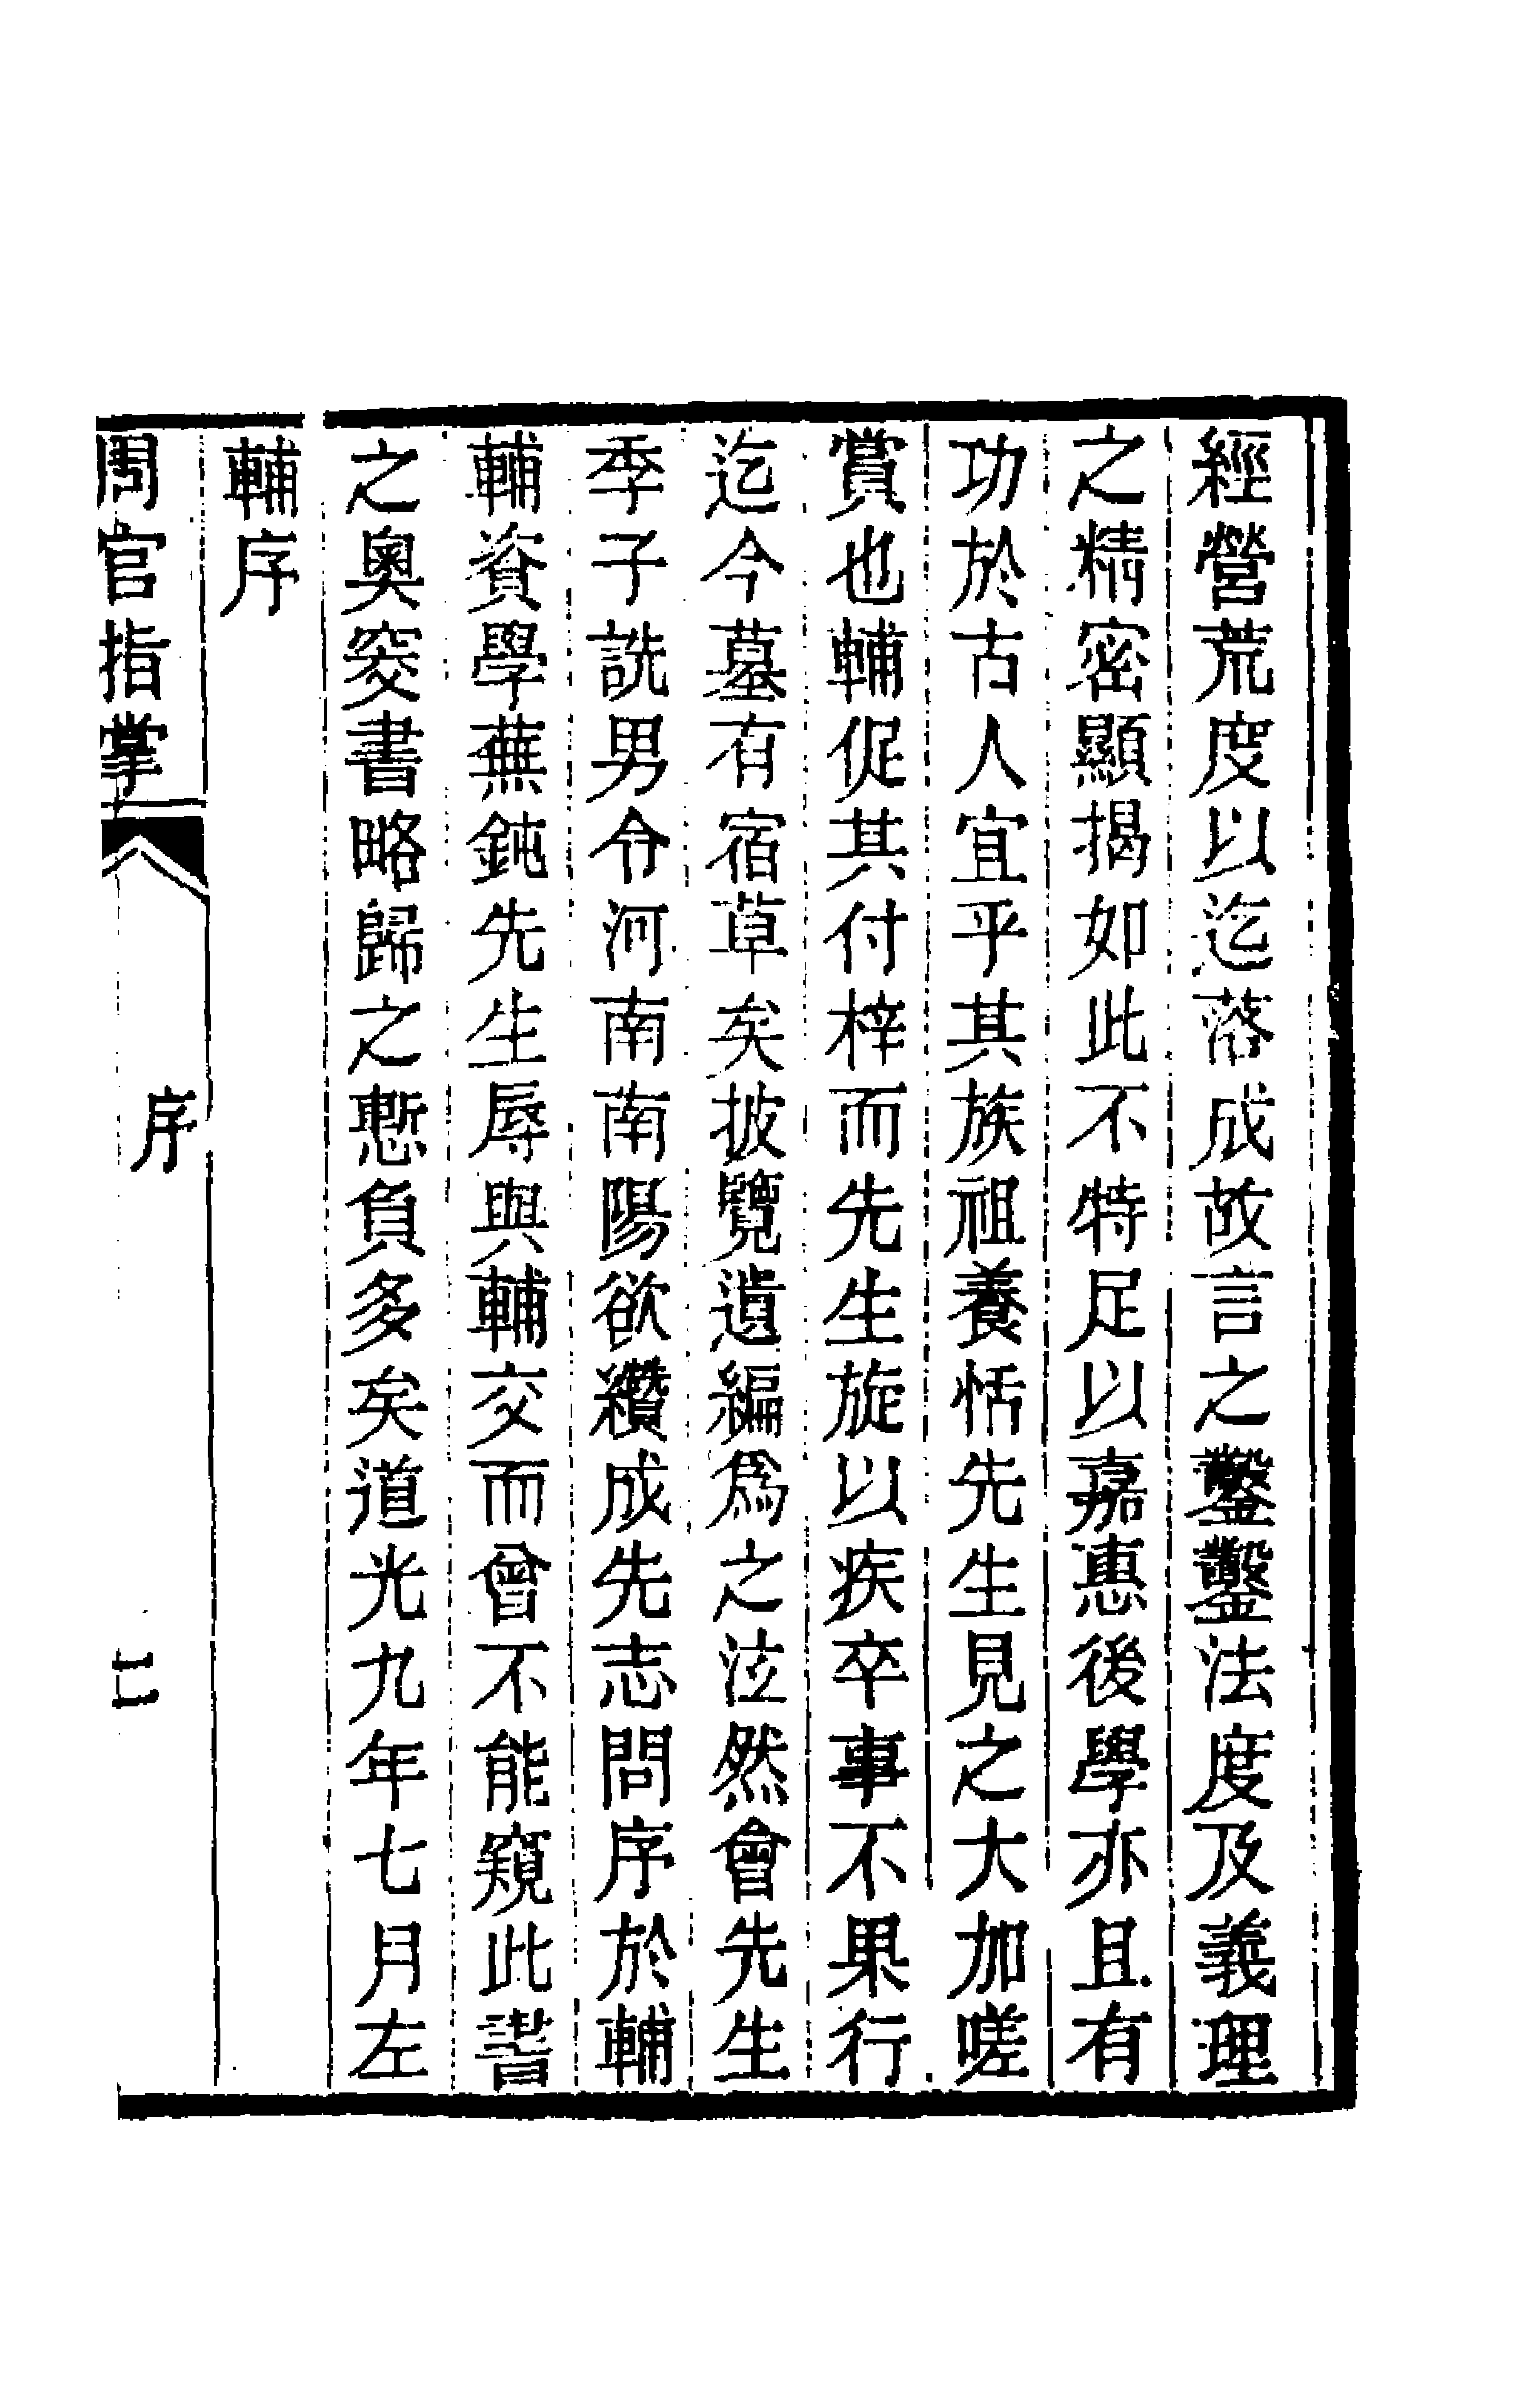 經營荒度以迄落成故言之鑿鑿法度及義理
之精密顯揭如此不特足以嘉惠後學亦且有
功於古人宜乎其族祖養恬先生見之大加嗟
賞也輔促其付梓而先生旋以疾卒事不果行
迄今墓有宿草矣披覽遺編爲之泫然會先生
季子詵男令河南南陽欲纘成先志問序於輔
輔資學蕪鈍先生辱與輔交而曾不能窺此書
之奧窔書略歸之慙負多矣道光九年七月左
輔序
周官指掌
序
二